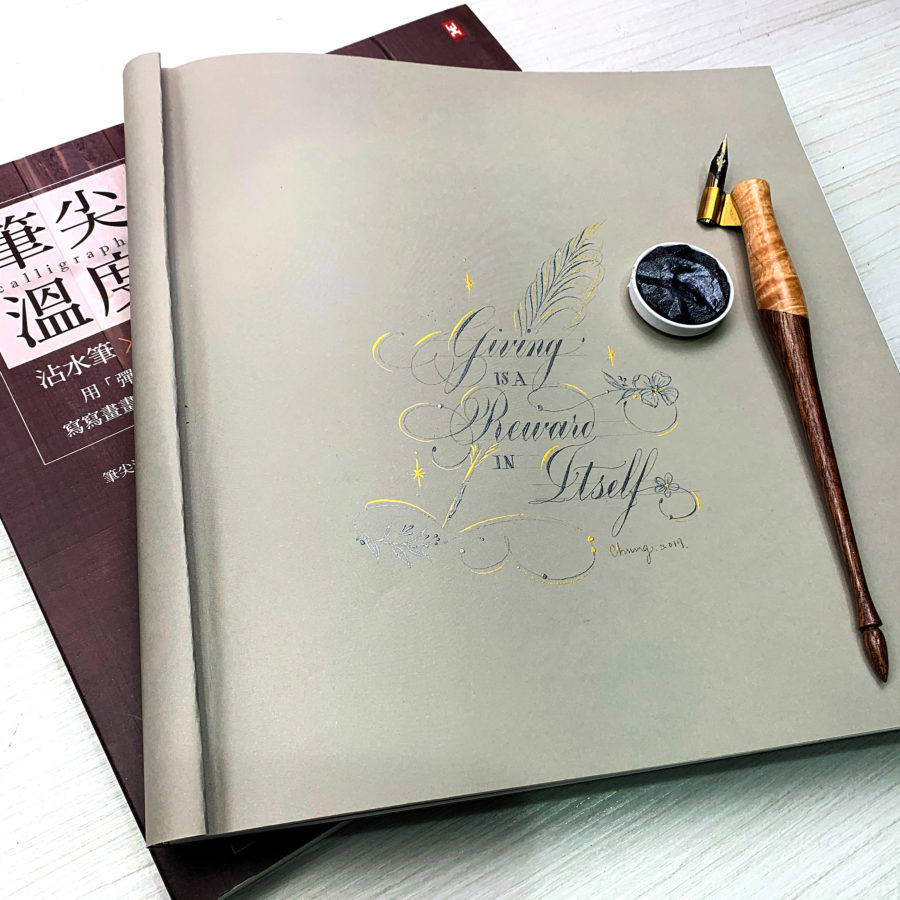 筆尖
calligraph
溫度
沾水筆
用「彈
寫寫畫畫
筆尖
Giving
IS A
Reward
IN
Itself
Chung. 2019.